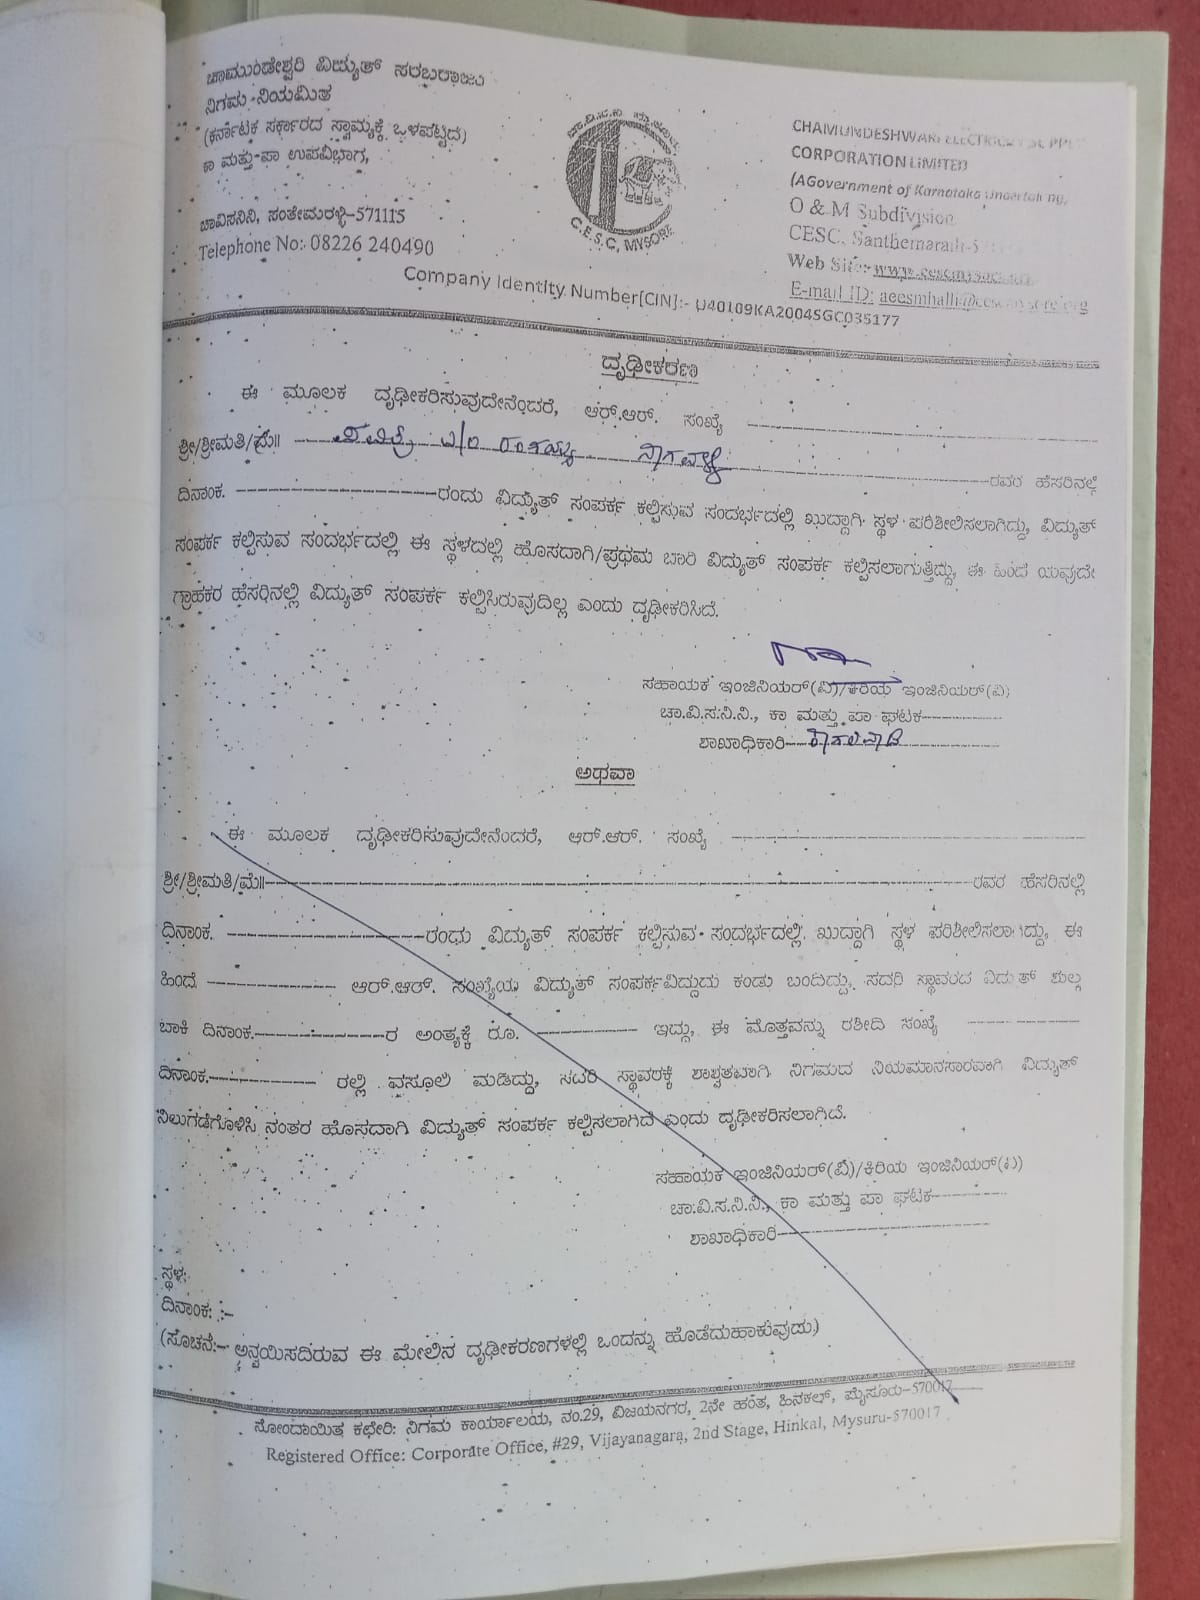 ಚಾಮುಂಡೇಶ್ವರಿ ವಿದ್ಯುತ್ ಸರಬರಾಜು
ನಿಗಮ ನಿಯಮಿತ
(ಕರ್ನಾಟಕ ಸರ್ಕಾರದ ಸ್ವಾಮ್ಯಕ್ಕೆ ಒಳಪಟ್ಟಿದೆ)
ಕಾ ಮತ್ತು ಪಾ ಉಪವಿಭಾಗ,
ಚಾವಿಸನಿನಿ, ಸಂತೇಮರಳ್ಳಿ-571115
Telephone No: 08226 240490
C.E.S.C, MYSORE
CHAMUNDESHWARI ELECTRICITY SUPPLY
CORPORATION LIMITED
(AGovernment of Karnataka Undertaking,
O & M Subdivision
CESC, Santhemaralli-5
Web Site:
E-mail ID: aeesmhalli@cescmysore.org
Company Identity Number[CIN]:- U40109KA2004SGC035177
ದೃಢೀಕರಣ
ಈ ಮೂಲಕ ದೃಢೀಕರಿಸುವುದೇನೆಂದರೆ, ಆರ್.ಆರ್. ಸಂಖ್ಯೆ
ಶ್ರೀ/ಶ್ರೀಮತಿ/ಮೆ॥ ನಾಗವಳ್ಳಿ ರವರ ಹೆಸರಿನಲ್ಲಿ
ದಿನಾಂಕ. ರಂದು ವಿದ್ಯುತ್ ಸಂಪರ್ಕ ಕಲ್ಪಿಸುವ ಸಂದರ್ಭದಲ್ಲಿ ಖುದ್ದಾಗಿ ಸ್ಥಳ ಪರಿಶೀಲಿಸಲಾಗಿದ್ದು, ವಿದ್ಯುತ್
ಸಂಪರ್ಕ ಕಲ್ಪಿಸುವ ಸಂದರ್ಭದಲ್ಲಿ ಈ ಸ್ಥಳದಲ್ಲಿ ಹೊಸದಾಗಿ/ಪ್ರಥಮ ಬಾರಿ ವಿದ್ಯುತ್ ಸಂಪರ್ಕ ಕಲ್ಪಿಸಲಾಗುತ್ತಿದ್ದು, ಈ ಹಿಂದೆ ಯಾವುದೇ
ಗ್ರಾಹಕರ ಹೆಸರಿನಲ್ಲಿ ವಿದ್ಯುತ್ ಸಂಪರ್ಕ ಕಲ್ಪಿಸಿರುವುದಿಲ್ಲ ಎಂದು ದೃಢೀಕರಿಸಿದೆ.
ಸಹಾಯಕ ಇಂಜಿನಿಯರ್(ವಿ)/ಕಿರಿಯ ಇಂಜಿನಿಯರ್(ವಿ)
ಚಾ.ವಿ.ಸ.ನಿ.ನಿ., ಕಾ ಮತ್ತು ಪಾ ಘಟಕ
ಶಾಖಾಧಿಕಾರಿ
ಅಥವಾ
ಈ ಮೂಲಕ ದೃಢೀಕರಿಸುವುದೇನೆಂದರೆ, ಆರ್.ಆರ್. ಸಂಖ್ಯೆ
ಶ್ರೀ/ಶ್ರೀಮತಿ/ಮೆ॥ ರವರ ಹೆಸರಿನಲ್ಲಿ
ದಿನಾಂಕ. ರಂಧು ವಿದ್ಯುತ್ ಸಂಪರ್ಕ ಕಲ್ಪಿಸುವ ಸಂದರ್ಭದಲ್ಲಿ ಖುದ್ದಾಗಿ ಸ್ಥಳ ಪರಿಶೀಲಿಸಲಾಗಿದ್ದು, ಈ
ಹಿಂದೆ ಆರ್.ಆರ್. ಸಂಖ್ಯೆಯ ವಿದ್ಯುತ್ ಸಂಪರ್ಕವಿದ್ದುದು ಕಂಡು ಬಂದಿದ್ದು, ಸದರಿ ಸ್ಥಾವರದ ವಿದ್ಯುತ್ ಶುಲ್ಕ
ಬಾಕಿ ದಿನಾಂಕ. ರ ಅಂತ್ಯಕ್ಕೆ ರೂ. ಇದ್ದು, ಈ ಮೊತ್ತವನ್ನು ರಶೀದಿ ಸಂಖ್ಯೆ
ದಿನಾಂಕ. ರಲ್ಲಿ ವಸೂಲಿ ಮಡಿದ್ದು, ಸದರಿ ಸ್ಥಾವರಕ್ಕೆ ಶಾಶ್ವತವಾಗಿ ನಿಗಮದ ನಿಯಮಾನಸಾರವಾಗಿ ವಿದ್ಯುತ್
ನಿಲುಗಡೆಗೊಳಿಸಿ ನಂತರ ಹೊಸದಾಗಿ ವಿದ್ಯುತ್ ಸಂಪರ್ಕ ಕಲ್ಪಿಸಲಾಗಿದೆ ಎಂದು ದೃಢೀಕರಿಸಲಾಗಿದೆ.
ಸಹಾಯಕ ಇಂಜಿನಿಯರ್(ವಿ)/ಕಿರಿಯ ಇಂಜಿನಿಯರ್(ವಿ)
ಚಾ.ವಿ.ಸ.ನಿ.ನಿ., ಕಾ ಮತ್ತು ಪಾ ಘಟಕ
ಶಾಖಾಧಿಕಾರಿ
ಸ್ಥಳ:
ದಿನಾಂಕ: :-
(ಸೂಚನೆ:- ಅನ್ವಯಿಸದಿರುವ ಈ ಮೇಲಿನ ದೃಢೀಕರಣಗಳಲ್ಲಿ ಒಂದನ್ನು ಹೊಡೆದುಹಾಕುವುದು)
ನೋಂದಾಯಿತ ಕಛೇರಿ: ನಿಗಮ ಕಾರ್ಯಾಲಯ, ನಂ.29, ವಿಜಯನಗರ, 2ನೇ ಹಂತ, ಹಿನಕಲ್, ಮೈಸೂರು-570017
Registered Office: Corporate Office, #29, Vijayanagara, 2nd Stage, Hinkal, Mysuru-570017